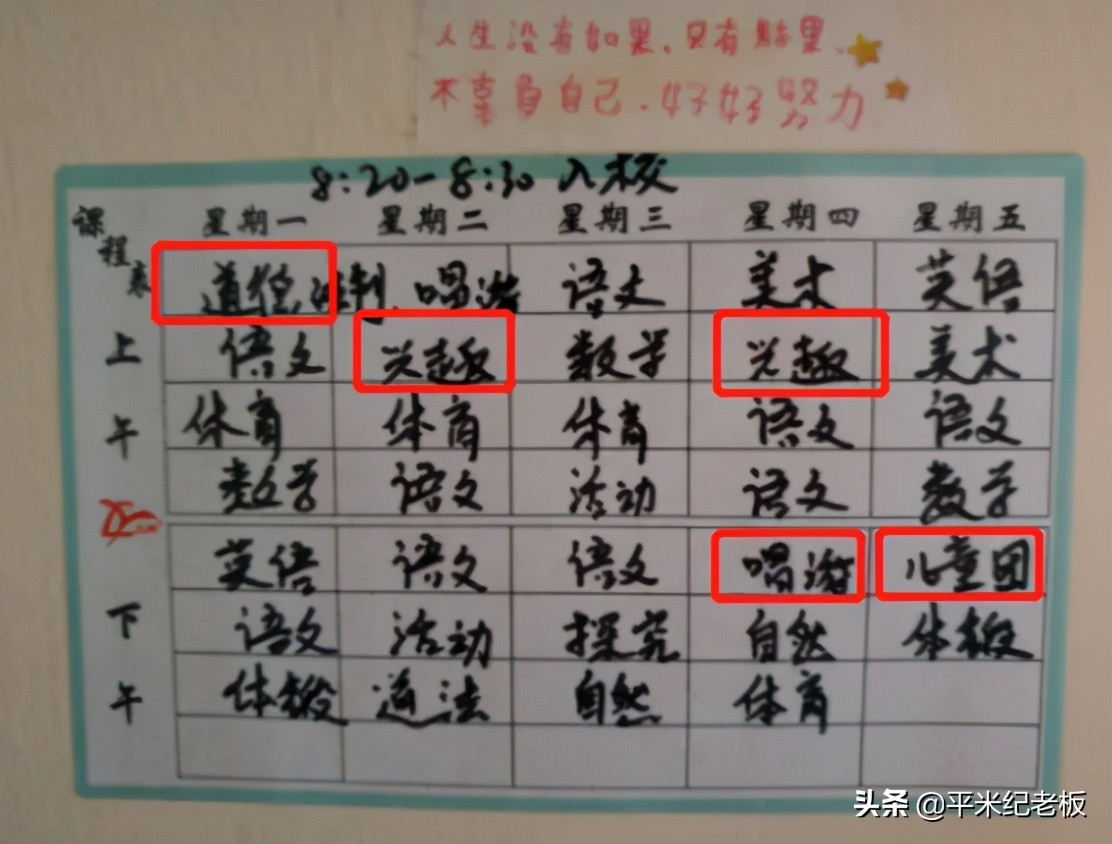 人生没有如果，只有结果，
不辜负自己，好好努力
8:20-8:30 入校
课程表 星期一 星期二 星期三 星期四 星期五
道德法制 唱游 语文 美术 英语
上 语文 兴趣 数学 兴趣 美术
午 体育 体育 体育 语文 语文
数学 语文 活动 语文 数学
英语 语文 语文 唱游 儿童团
下 语文 活动 探究 自然 体锻
午 体锻 道法 自然 体育
头条 @平米纪老板